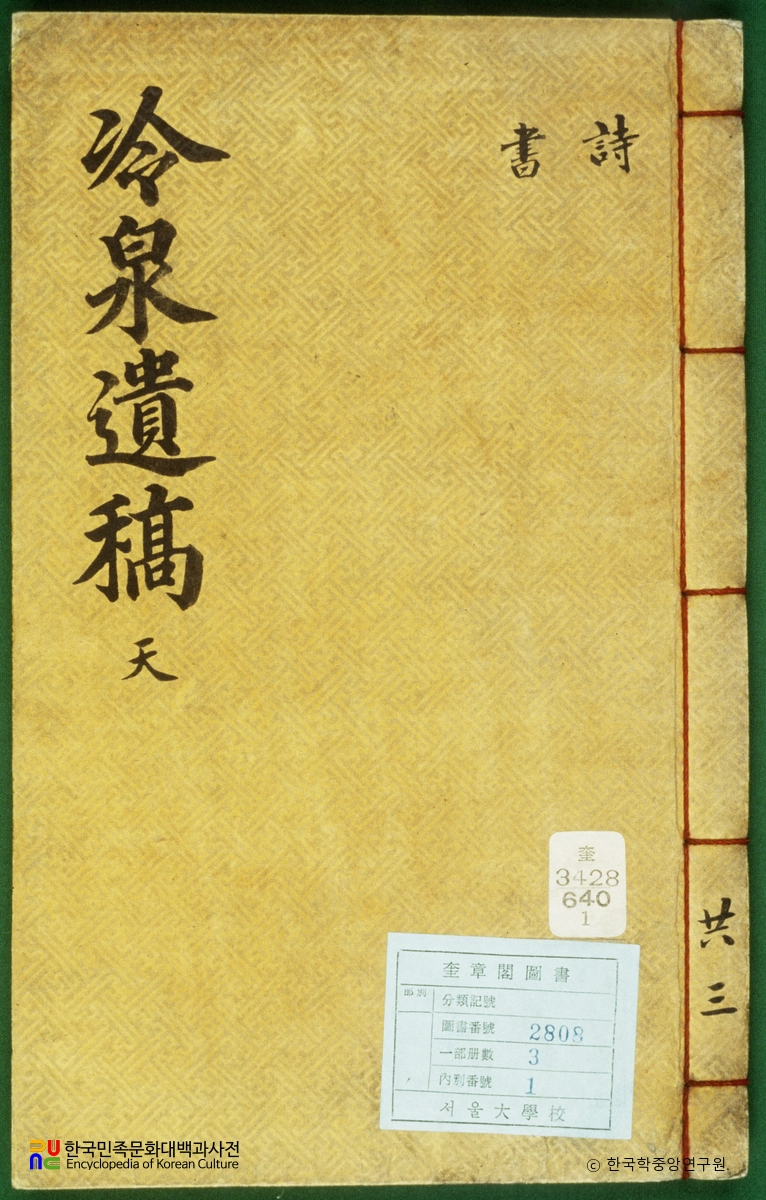 冷泉遺稿 天
詩
書
共三
奎
3428
640
1
奎章閣圖書
部別
分類記號
圖書番號 2808
一部册數 3
內別番號 1
서울大學校
한국민족문화대백과사전
Encyclopedia of Korean Culture
ⓒ 한국학중앙연구원.